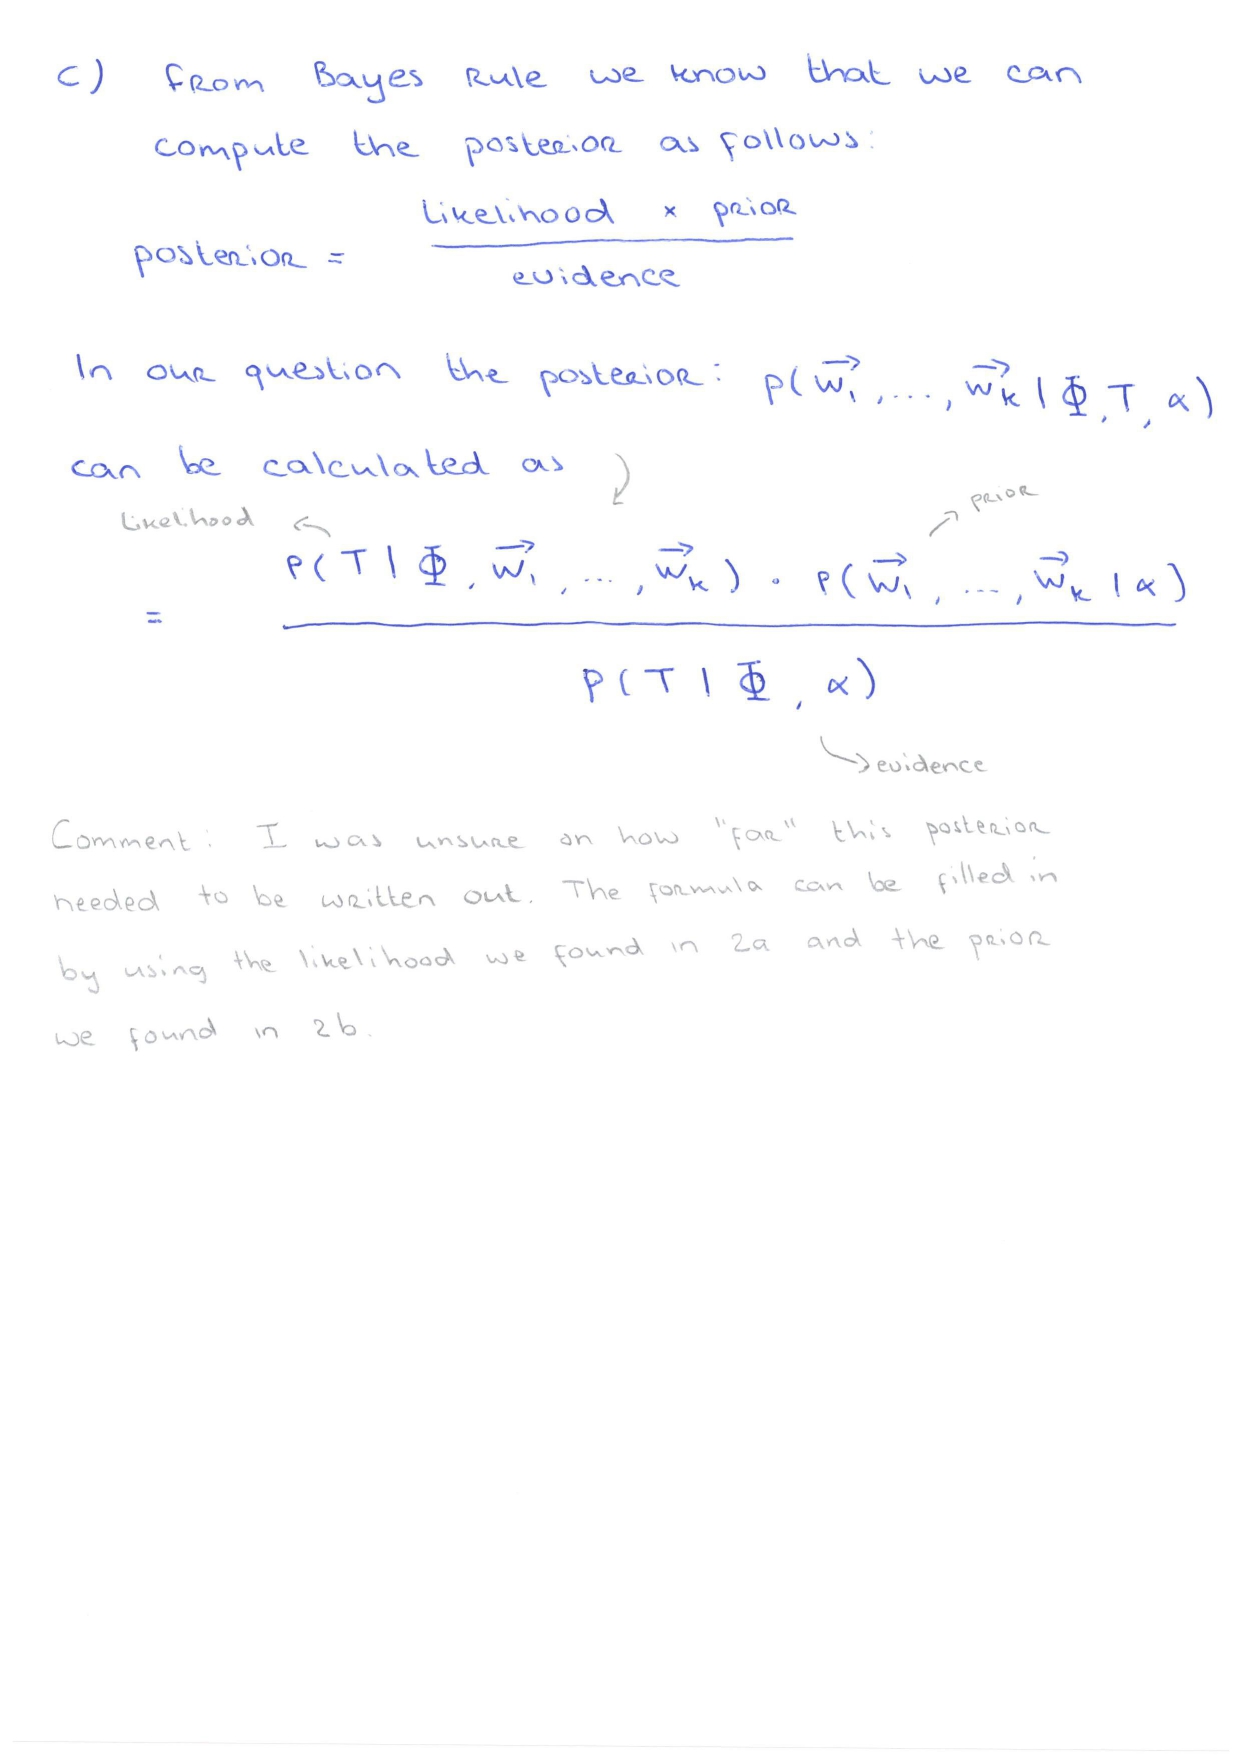 c) From Bayes Rule we know that we can
compute the posterior as follows:
posterior = likelihood × prior / evidence
In our question the posterior: p(w⃗₁, ..., w⃗ₖ | Φ, T, α)
can be calculated as
likelihood
prior
= p(T | Φ, w⃗₁, ..., w⃗ₖ) · p(w⃗₁, ..., w⃗ₖ | α) / p(T | Φ, α)
evidence
Comment: I was unsure on how "far" this posterior
needed to be written out. The formula can be filled in
by using the likelihood we found in 2a and the prior
we found in 2b.